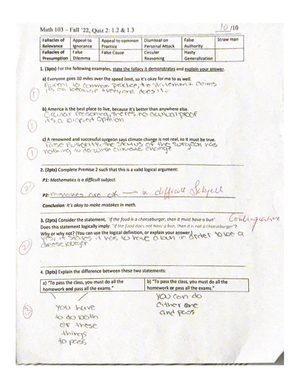 Math 103 – Fall '22, Quiz 2: 1.2 & 1.3
10/10
Fallacies of Relevance
Appeal to Ignorance
Appeal to common Practice
Dismissal or Personal Attack
False Authority
Straw man
Fallacies of Presumption
False Dilemma
False Cause
Circular Reasoning
Hasty Generalization
1. (3pts) For the following examples, state the fallacy it demonstrates and explain your answer.
a) Everyone goes 10 miles over the speed limit, so it's okay for me to as well.
Appeal to common practice, the statement claims
its ok because everyone does it.
1
b) America is the best place to live, because it's better than anywhere else
Circular reasoning, theres no actual proof
it's a biased opinion
1
c) A renowned and successful surgeon says climate change is not real, so it must be true.
False Authority, the status of the surgeon has
nothing to do with climate change
1
2. (2pts) Complete Premise 2 such that this is a valid logical argument:
P1: Mathematics is a difficult subject.
P2: mistakes are ok in a difficult Subject
Conclusion: It's okay to make mistakes in math.
3. (2pts) Consider the statement, "If the food is a cheeseburger, then it must have a bun"
Does this statement logically imply: "If the food does not have a bun, then it is not a cheeseburger"?
Why or why not? (You can use the logical definition, or explain your answer.)
yes, it states it has to have a bun in order to be a
cheeseburger
4. (3pts) Explain the difference between these two statements:
a) "To pass the class, you must do all the homework and pass all the exams."
b) "To pass the class, you must do all the homework or pass all the exams."
you have
to do both
of these
things
to pass
you can do
either one
and pass
3